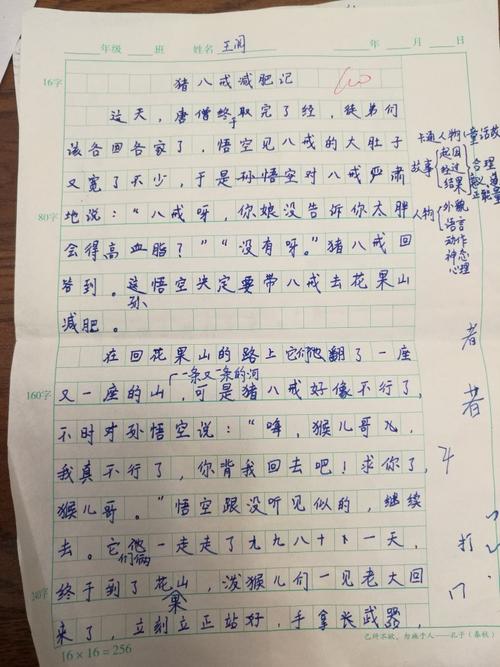 年级 班 姓名 王闻 年 月 日
16字
猪八戒减肥记
这天,唐僧终于取完了经,徒弟们
该各回各家了,悟空见八戒的大肚子
又宽了不少,于是孙悟空对八戒严肃
80字 地说:“八戒呀,你娘没告诉你太胖
会得高血脂?”“没有呀。”猪八戒回
答到。这孙悟空决定要带八戒去花果山
减肥。
在回花果山的路上它们他翻了一座
一条又一条的河
160字 又一座的山,可是猪八戒好像不行了,
不时对孙悟空说:“哞,猴儿哥飞,
我真不行了,你背我回去吧!求你了,
猴儿哥。”悟空跟没听见似的,继续
去。它他们俩一走走了九九八十一天,
240字 终于到了花果山,泼猴儿们一见老大回
来了,立刻立正站好,手拿长武器,
16×16=256
己所不欲,勿施于人——孔子(春秋)
卡通人物 童话故
故事 起因
经过
结果
合理
正能量
人物 外貌
语言
动作
神态
心理
者
者
打